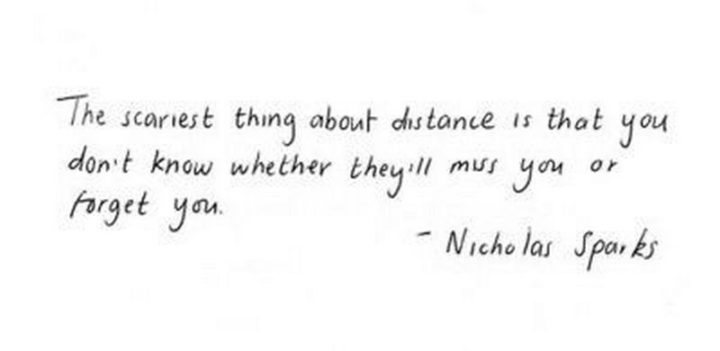 The scariest thing about distance is that you
don't know whether they'll miss you or
forget you.
- Nicholas Sparks